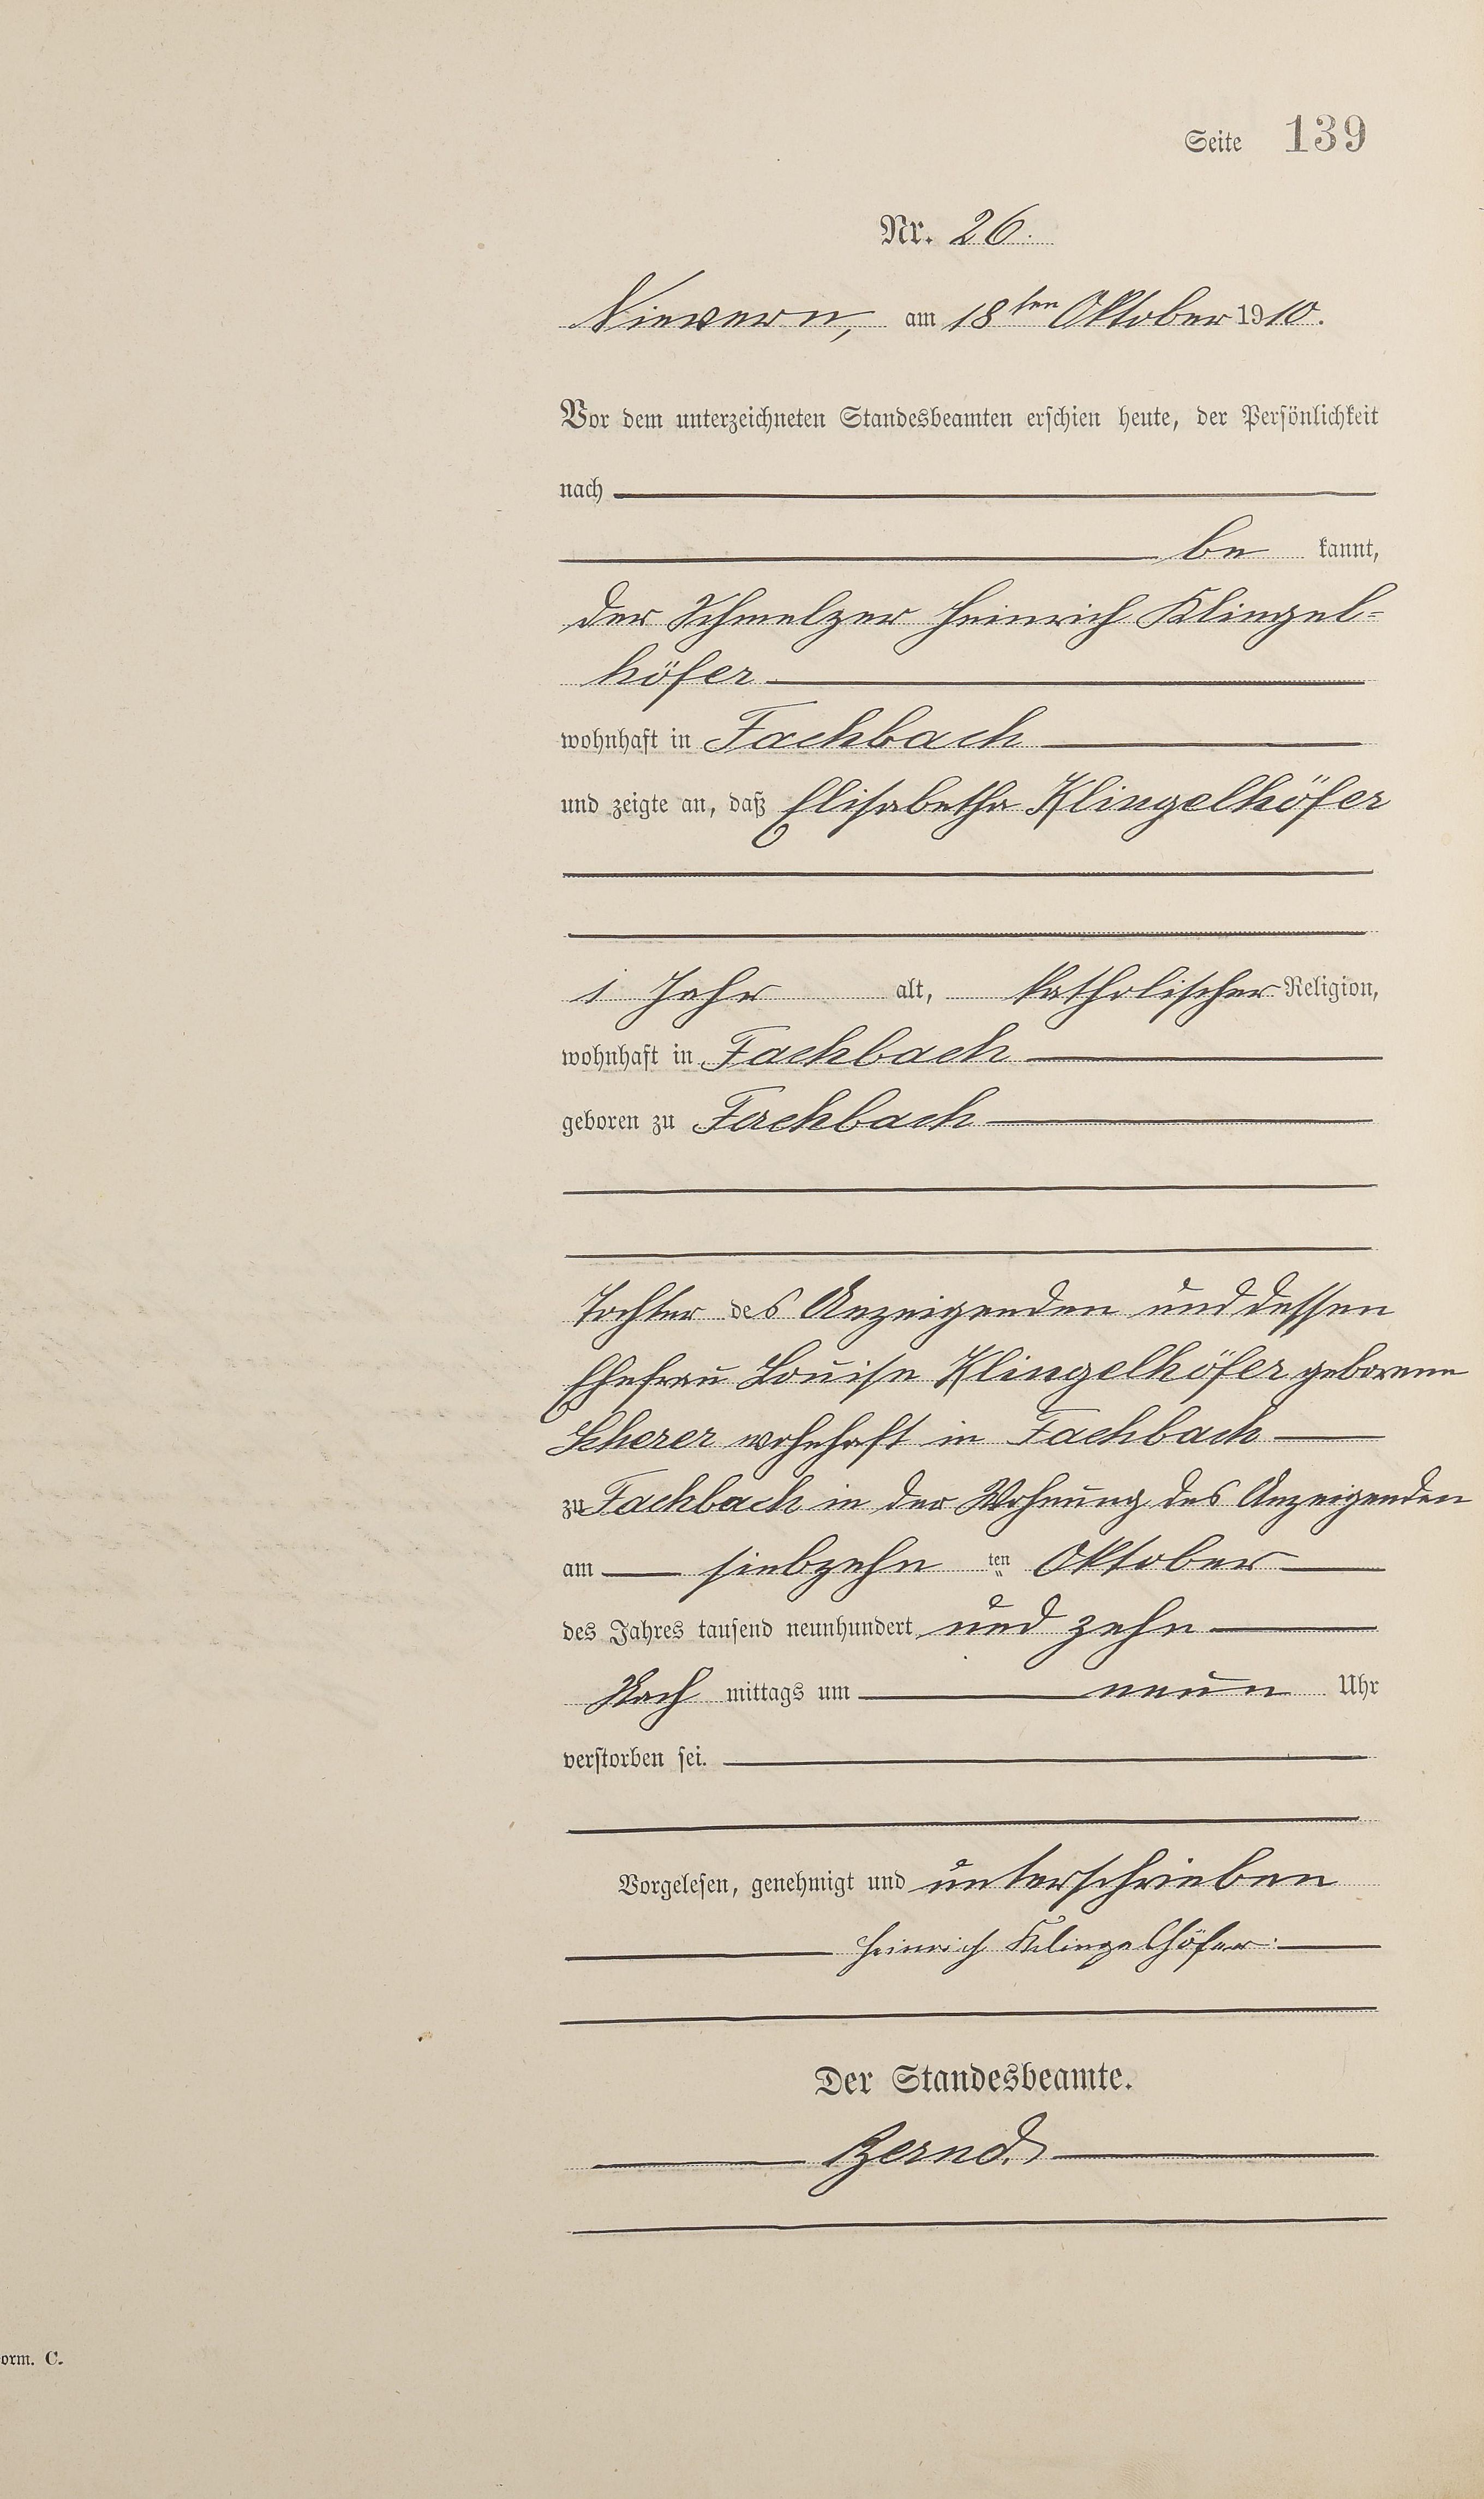 Seite 139
Nr. 26.
Nievern, am 18ten Oktober 1910.
Vor dem unterzeichneten Standesbeamten erschien heute, der Persönlichkeit
nach
be kannt,
der Schmelzer Heinrich Klingel-
höfer
wohnhaft in Fachbach
und zeigte an, daß Elisabetha Klingelhöfer
1 Jahr alt, katholischer Religion,
wohnhaft in Fachbach
geboren zu Fachbach
Tochter des Anzeigenden und dessen
Ehefrau Louise Klingelhöfer geborene
Scherer wohnhaft in Fachbach
zu Fachbach in der Wohnung des Anzeigenden
am siebzehn ten Oktober
des Jahres tausend neunhundert und zehn
Nach mittags um neun Uhr
verstorben sei.
Vorgelesen, genehmigt und unterschrieben
Heinrich Klingelhöfer.
Der Standesbeamte.
Zernd.
orm. C.